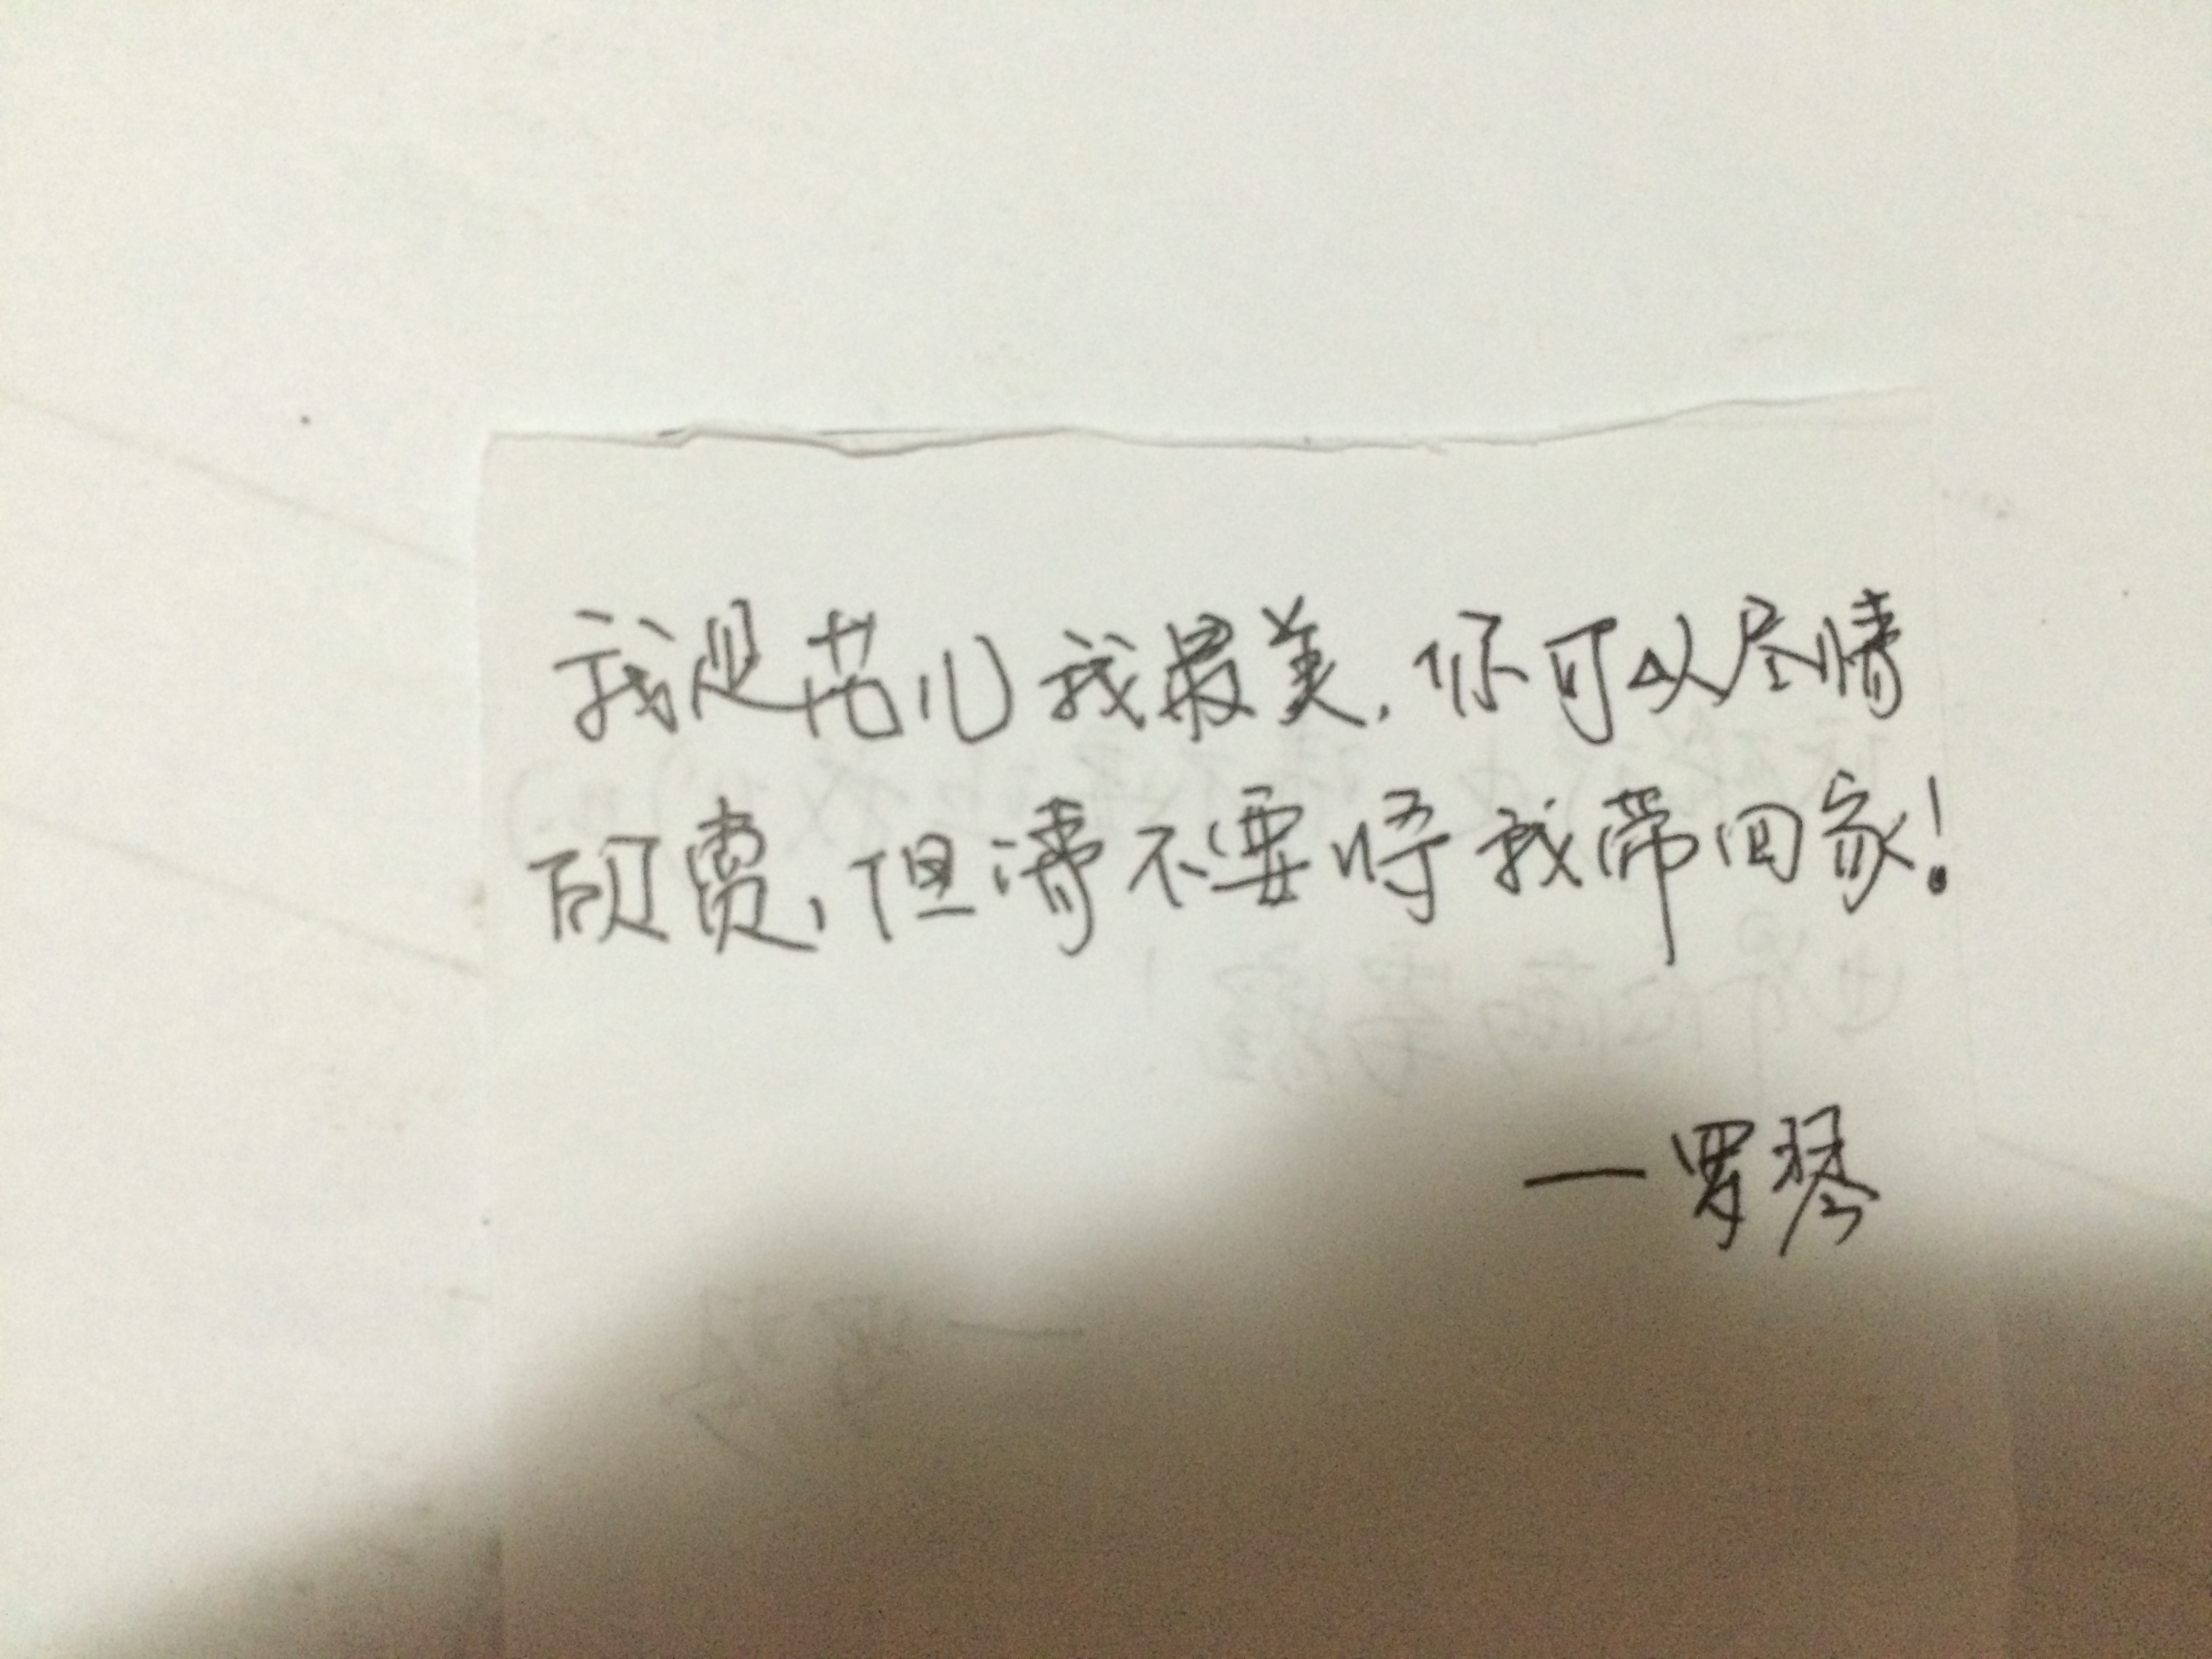 我是花儿我最美，你可以尽情
欣赏，但请不要将我带回家！
—罗琴